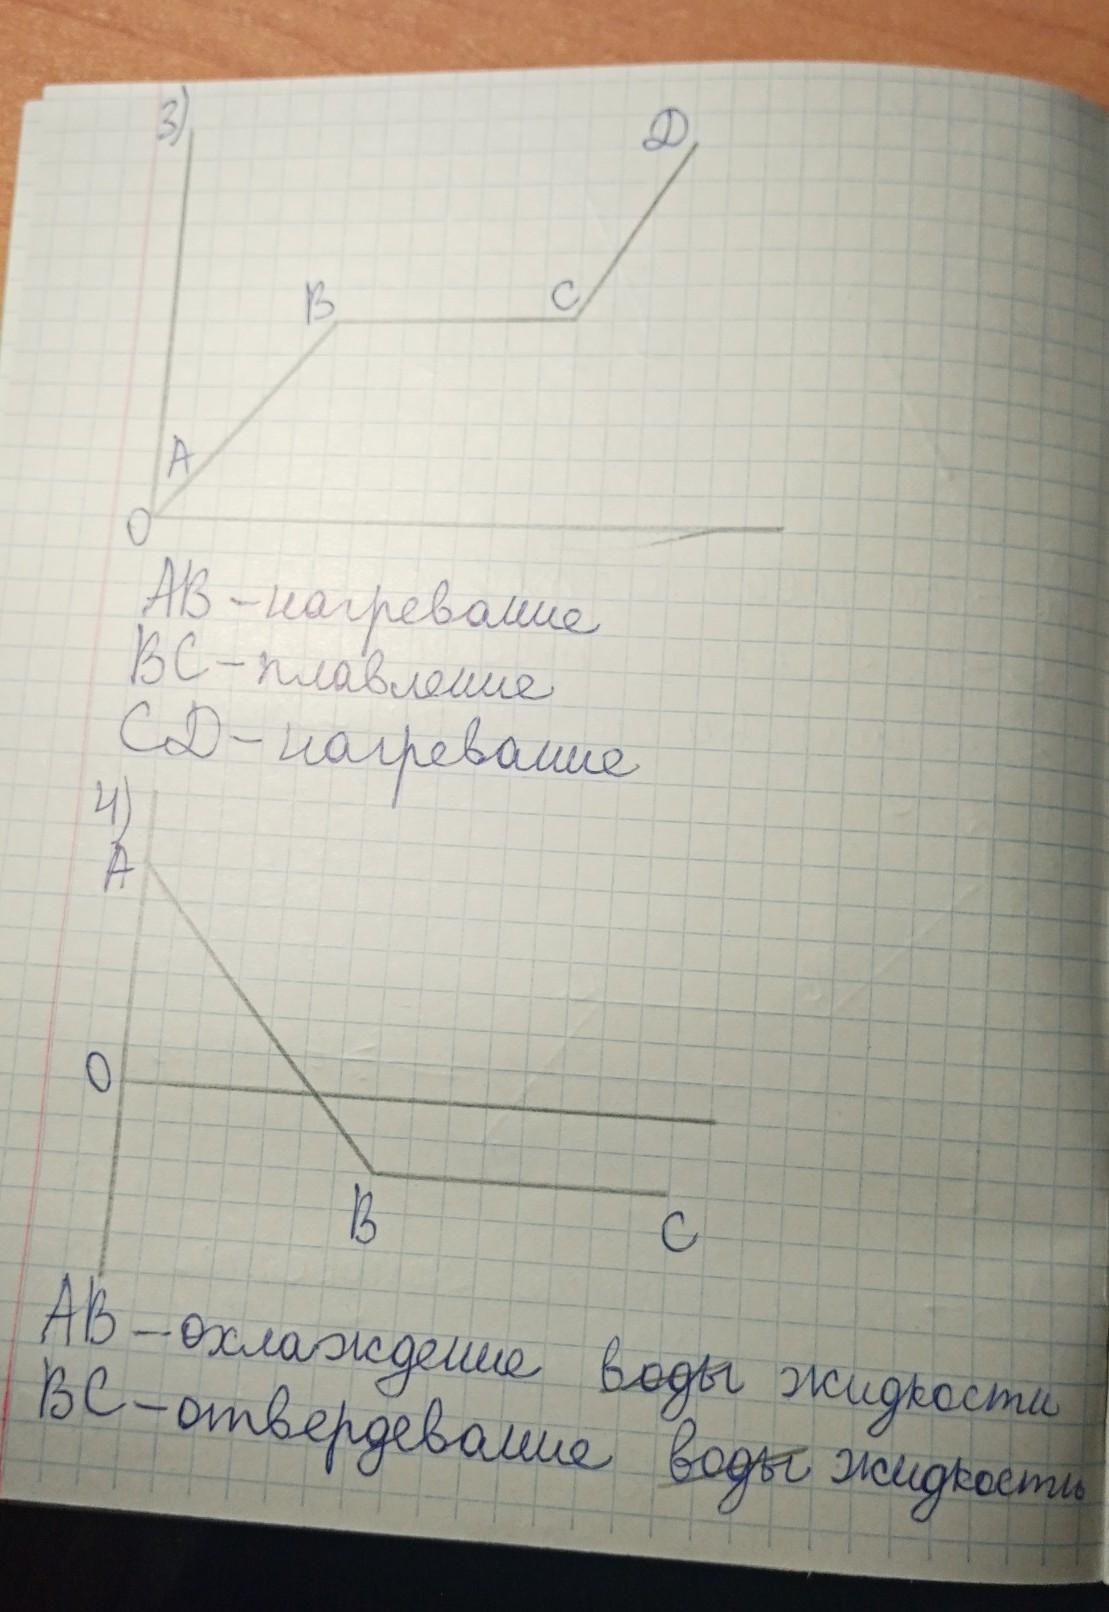 3)
D
B
C
A
O
AB - нагревание
BC - плавление
CD - нагревание
4)
A
O
B
C
AB - охлаждение воды жидкости
BC - отвердевание воды жидкости